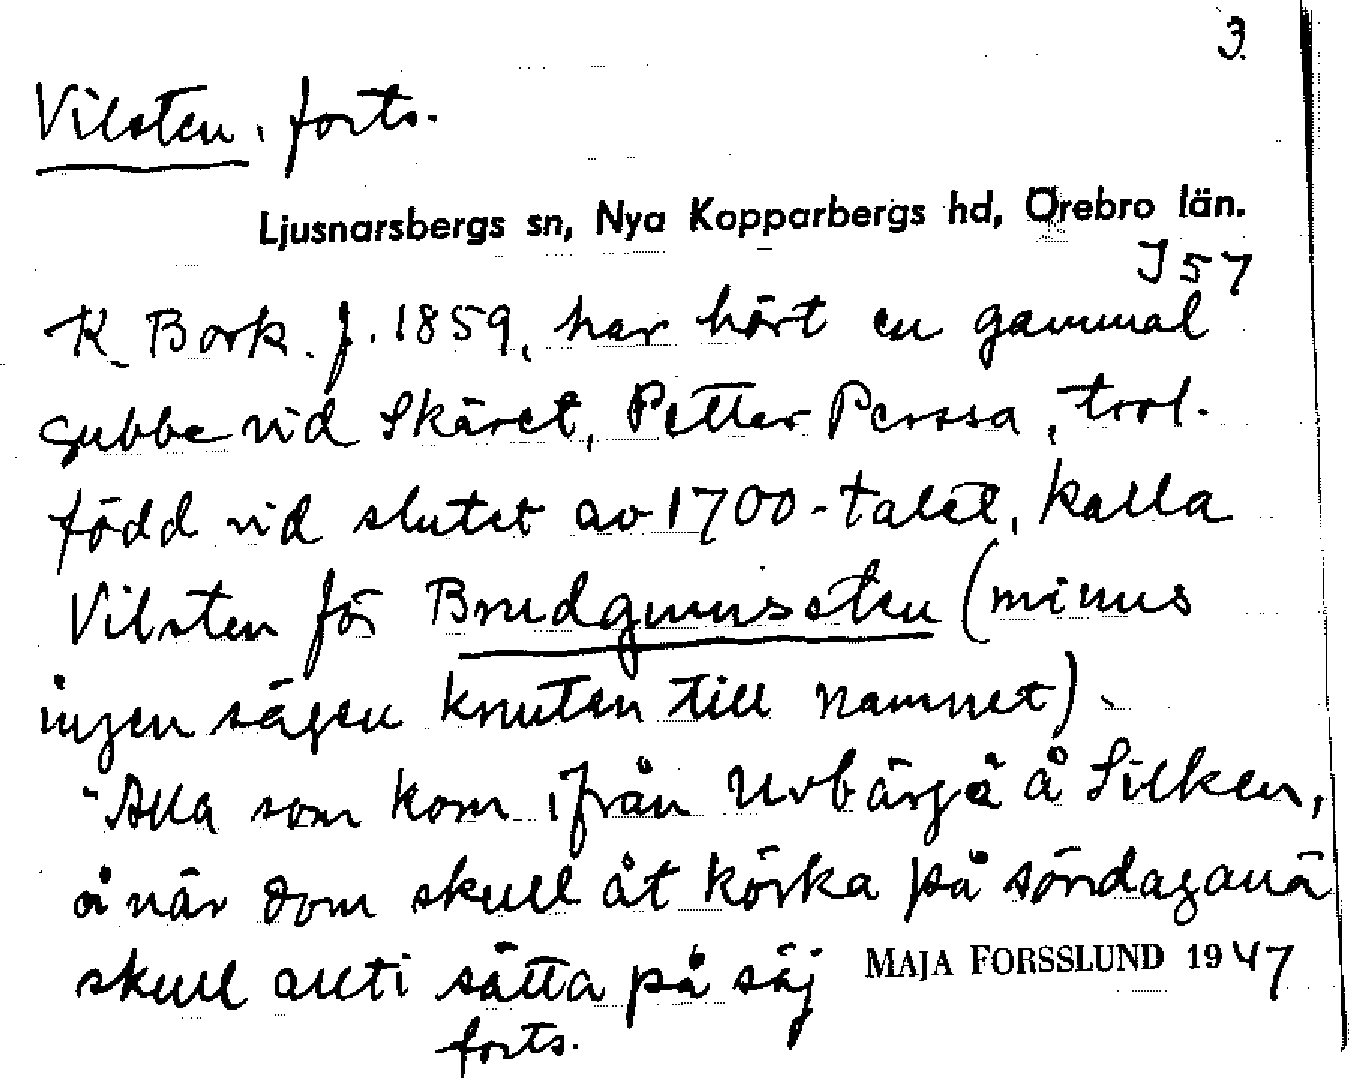 3.
Vilsten, forts.
Ljusnarsbergs sn, Nya Kopparbergs hd, Örebro län.
J 57
K. Bork. f. 1859, har hört en gammal
gubbe vid Skäret, Petter Perssa, trol.
född vid slutet av 1700-talet, kalla
Vilsten för Brudgumssten (minns
ingen sägen knuten till namnet).
"Alla som kom ifrån Uvbärgä å Silken,
å när dom skull åt körka på söndaganä
skull allti sätta på säj
MAJA FORSSLUND 1947
forts.